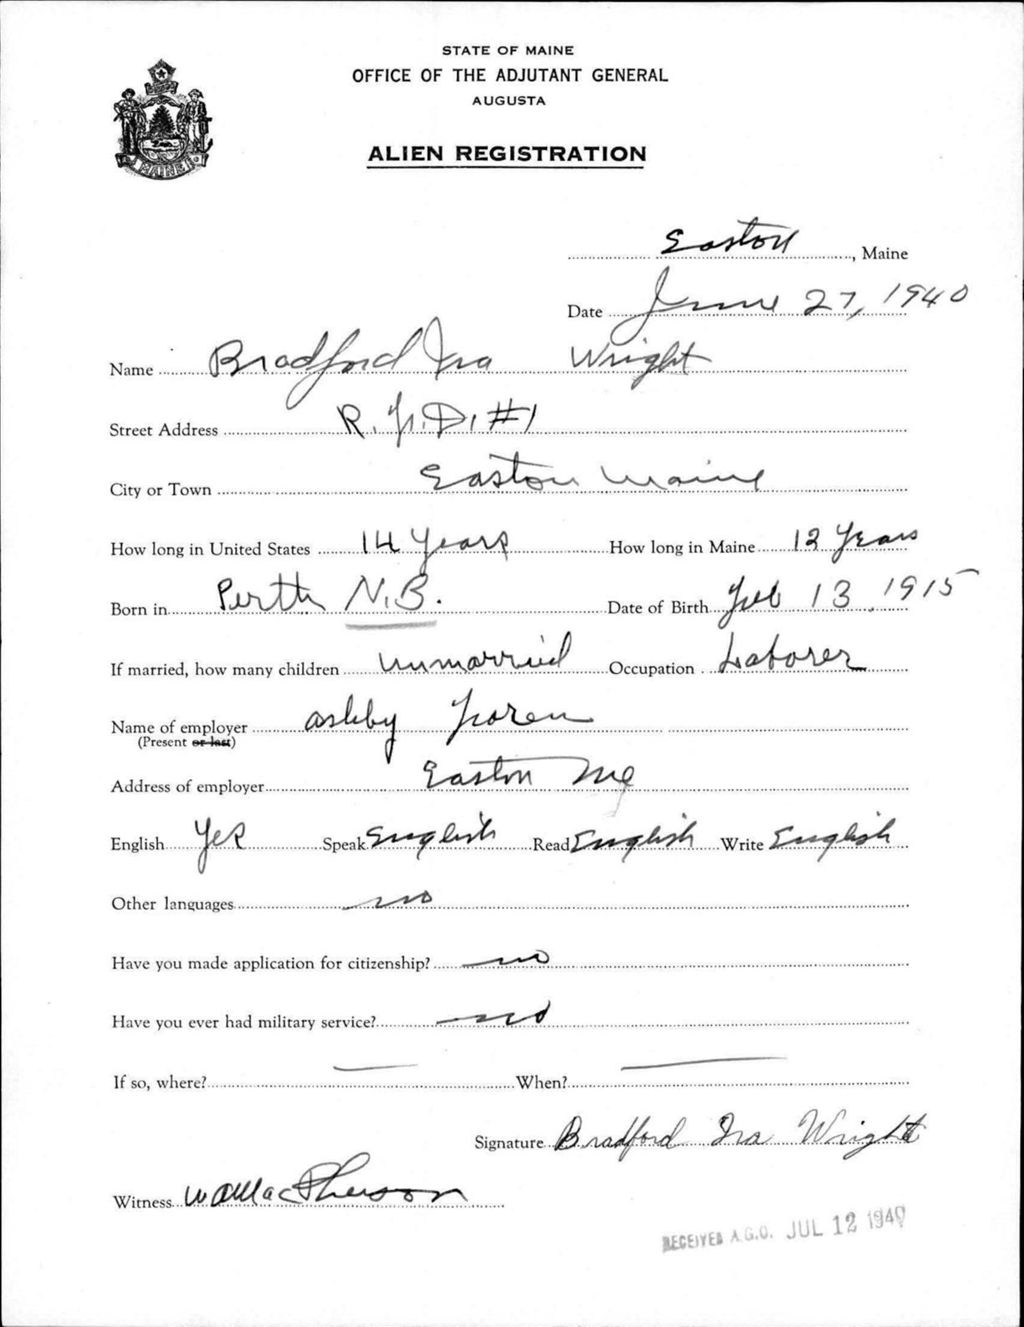 STATE OF MAINE
OFFICE OF THE ADJUTANT GENERAL
AUGUSTA
ALIEN REGISTRATION
MAINE
Easton, Maine
Date June 27, 1940
Name Bradford Ira Wright
Street Address R.F.D. #1
City or Town Easton Maine
How long in United States 14 Years How long in Maine 12 Years
Born in Perth N.B. Date of Birth Feb 13, 1915
If married, how many children unmarried Occupation Laborer
Name of employer Ashby
(Present or last)
Address of employer Easton Me
English Yes Speak English Read English Write English
Other languages no
Have you made application for citizenship? no
Have you ever had military service? no
If so, where? — When? —
Signature Bradford Ira Wright
Witness MacPherson
RECEIVED A.G.O. JUL 12 1940